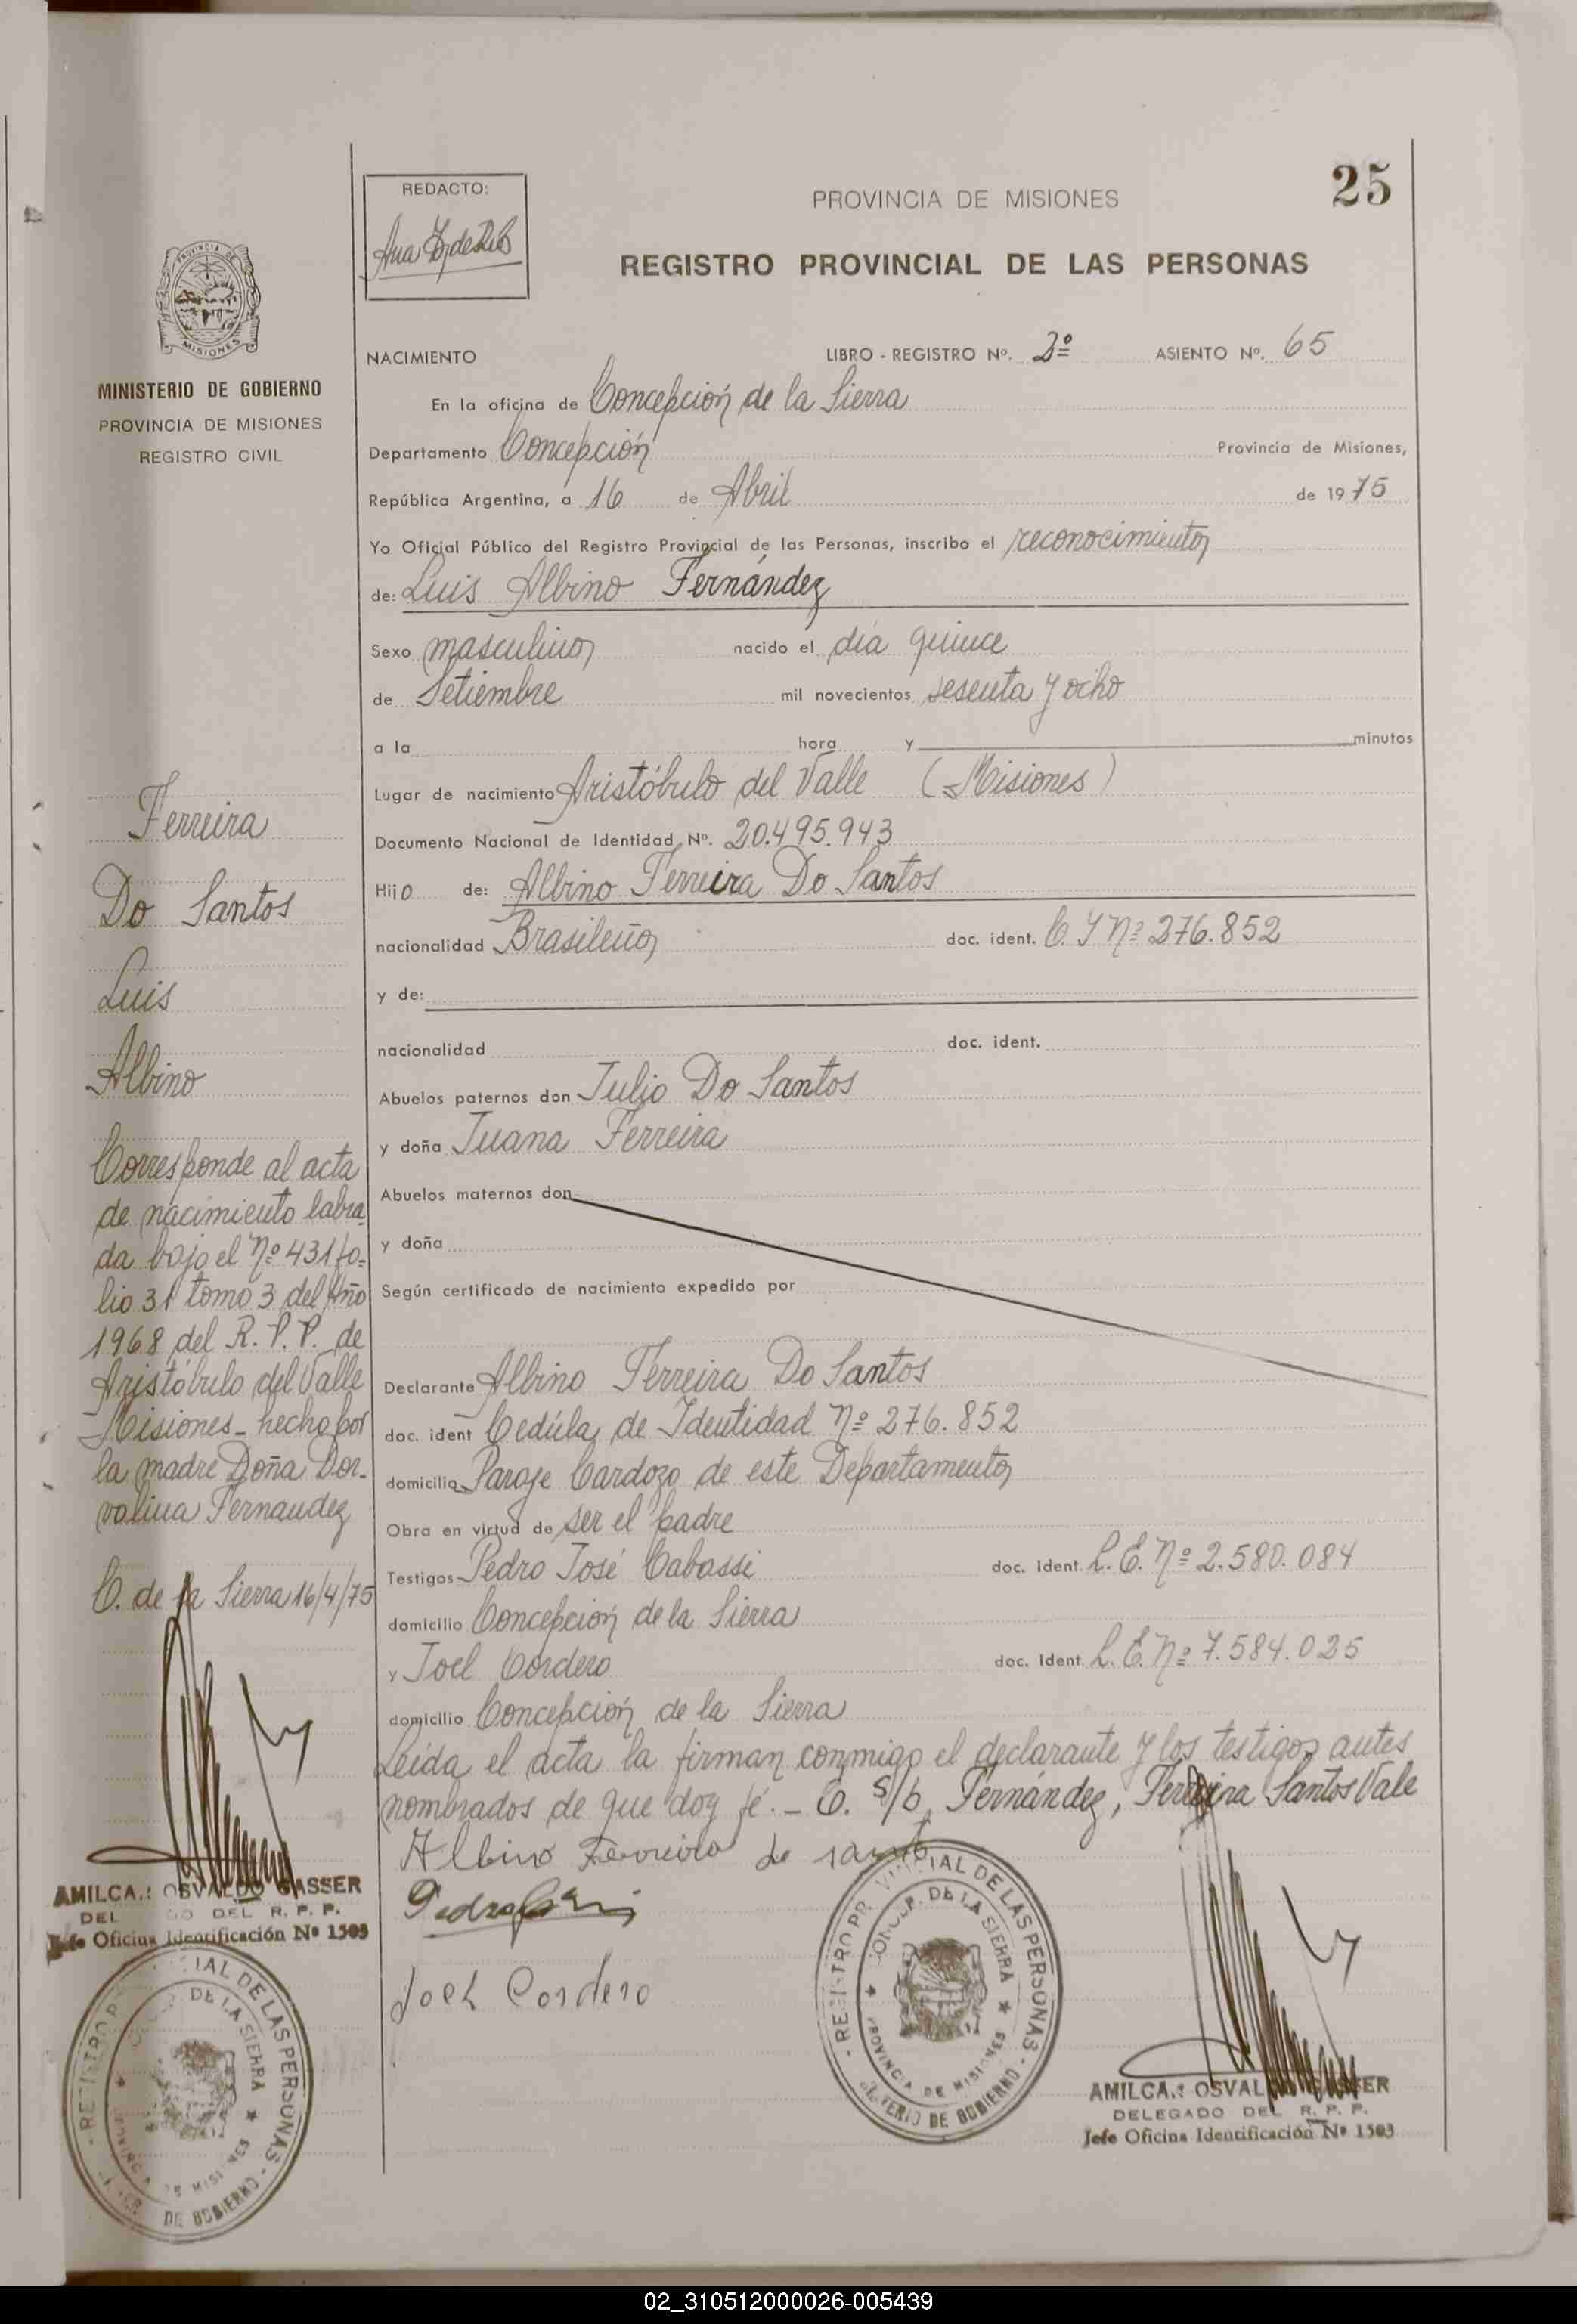 25
REDACTO:
PROVINCIA DE MISIONES
REGISTRO PROVINCIAL DE LAS PERSONAS
PROVINCIA DE
MISIONES
MINISTERIO DE GOBIERNO
PROVINCIA DE MISIONES
REGISTRO CIVIL
NACIMIENTO LIBRO - REGISTRO Nº. 2º ASIENTO Nº. 65
En la oficina de Concepción de la Sierra
Departamento Concepción Provincia de Misiones,
República Argentina, a 16 de Abril de 1975
Yo Oficial Público del Registro Provincial de las Personas, inscribo el reconocimiento
de: Luis Albino Fernández
Sexo masculino nacido el día quince
de Setiembre mil novecientos sesenta y ocho
a la hora y minutos
Lugar de nacimiento Aristóbulo del Valle (Misiones)
Documento Nacional de Identidad Nº. 20.495.943
Hijo de: Albino Ferreira Do Santos
nacionalidad Brasileño doc. ident. C. I Nº 276.852
y de:
nacionalidad doc. ident.
Abuelos paternos don Julio Do Santos
y doña Juana Ferreira
Abuelos maternos don
y doña
Según certificado de nacimiento expedido por
Declarante Albino Ferreira Do Santos
doc. ident Cedúla de Identidad Nº 276.852
domicilio Paraje Cardozo de este Departamento
Obra en virtud de ser el padre
Testigos Pedro José Cabassi doc. ident. L. E. Nº 2.580.084
domicilio Concepción de la Sierra
y Joel Cordero doc. ident. L. E. Nº 7.584.025
domicilio Concepción de la Sierra
Leída el acta la firman conmigo el declarante y los testigos antes
nombrados de que doy fé. - C. s/b Fernández, Ferreira Santos Vale
Albino Ferreira de
Pedro
Joel Cordero
Ferreira
Do Santos
Luis
Albino
Corresponde al acta
de nacimiento labra
da bajo el Nº 431 fo=
lio 31 tomo 3 del Año
1968 del R. P. P. de
Aristóbulo del Valle
Misiones - hecho por
la madre Doña Dor-
valina Fernandez
C. de la Sierra 16/4/75
AMILCA.: OSVALDO GASSER
DEL DEL R. P. P.
Jefe Oficina Identificación Nº 1503
REGISTRO PR IAL DE LAS PERSONAS
DE LA SIERRA
PROVINCIA DE MISIONES
DE GOBIERNO
REGISTRO PROVINCIAL DE LAS PERSONAS
CONCEP. DE LA SIERRA
PROVINCIA DE MISIONES
MINISTERIO DE GOBIERNO
AMILCA.: OSVALDO GASSER
DELEGADO DEL R. P. P.
Jefe Oficina Identificación Nº 1503
02_310512000026-005439